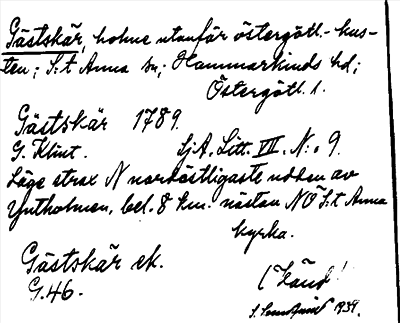 Gästskär, holme utanför östergötl.-kus-
ten; S:t Anna sn; Hammarkinds hd;
Östergötl. l.
Gästskär 1789.
G. Klint. SjA. Litt. VII. N:o 9.
Läge strax N nordostligaste udden av
Yntholmen, bel. 8 km. nästan NO S:t Anna
kyrka.
Gästskär ek.
G.46.
S. 1939.